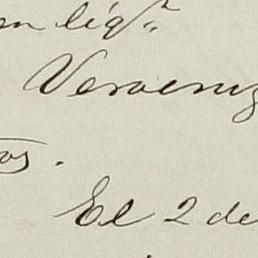 en liq.
Veracruz
El 2 de